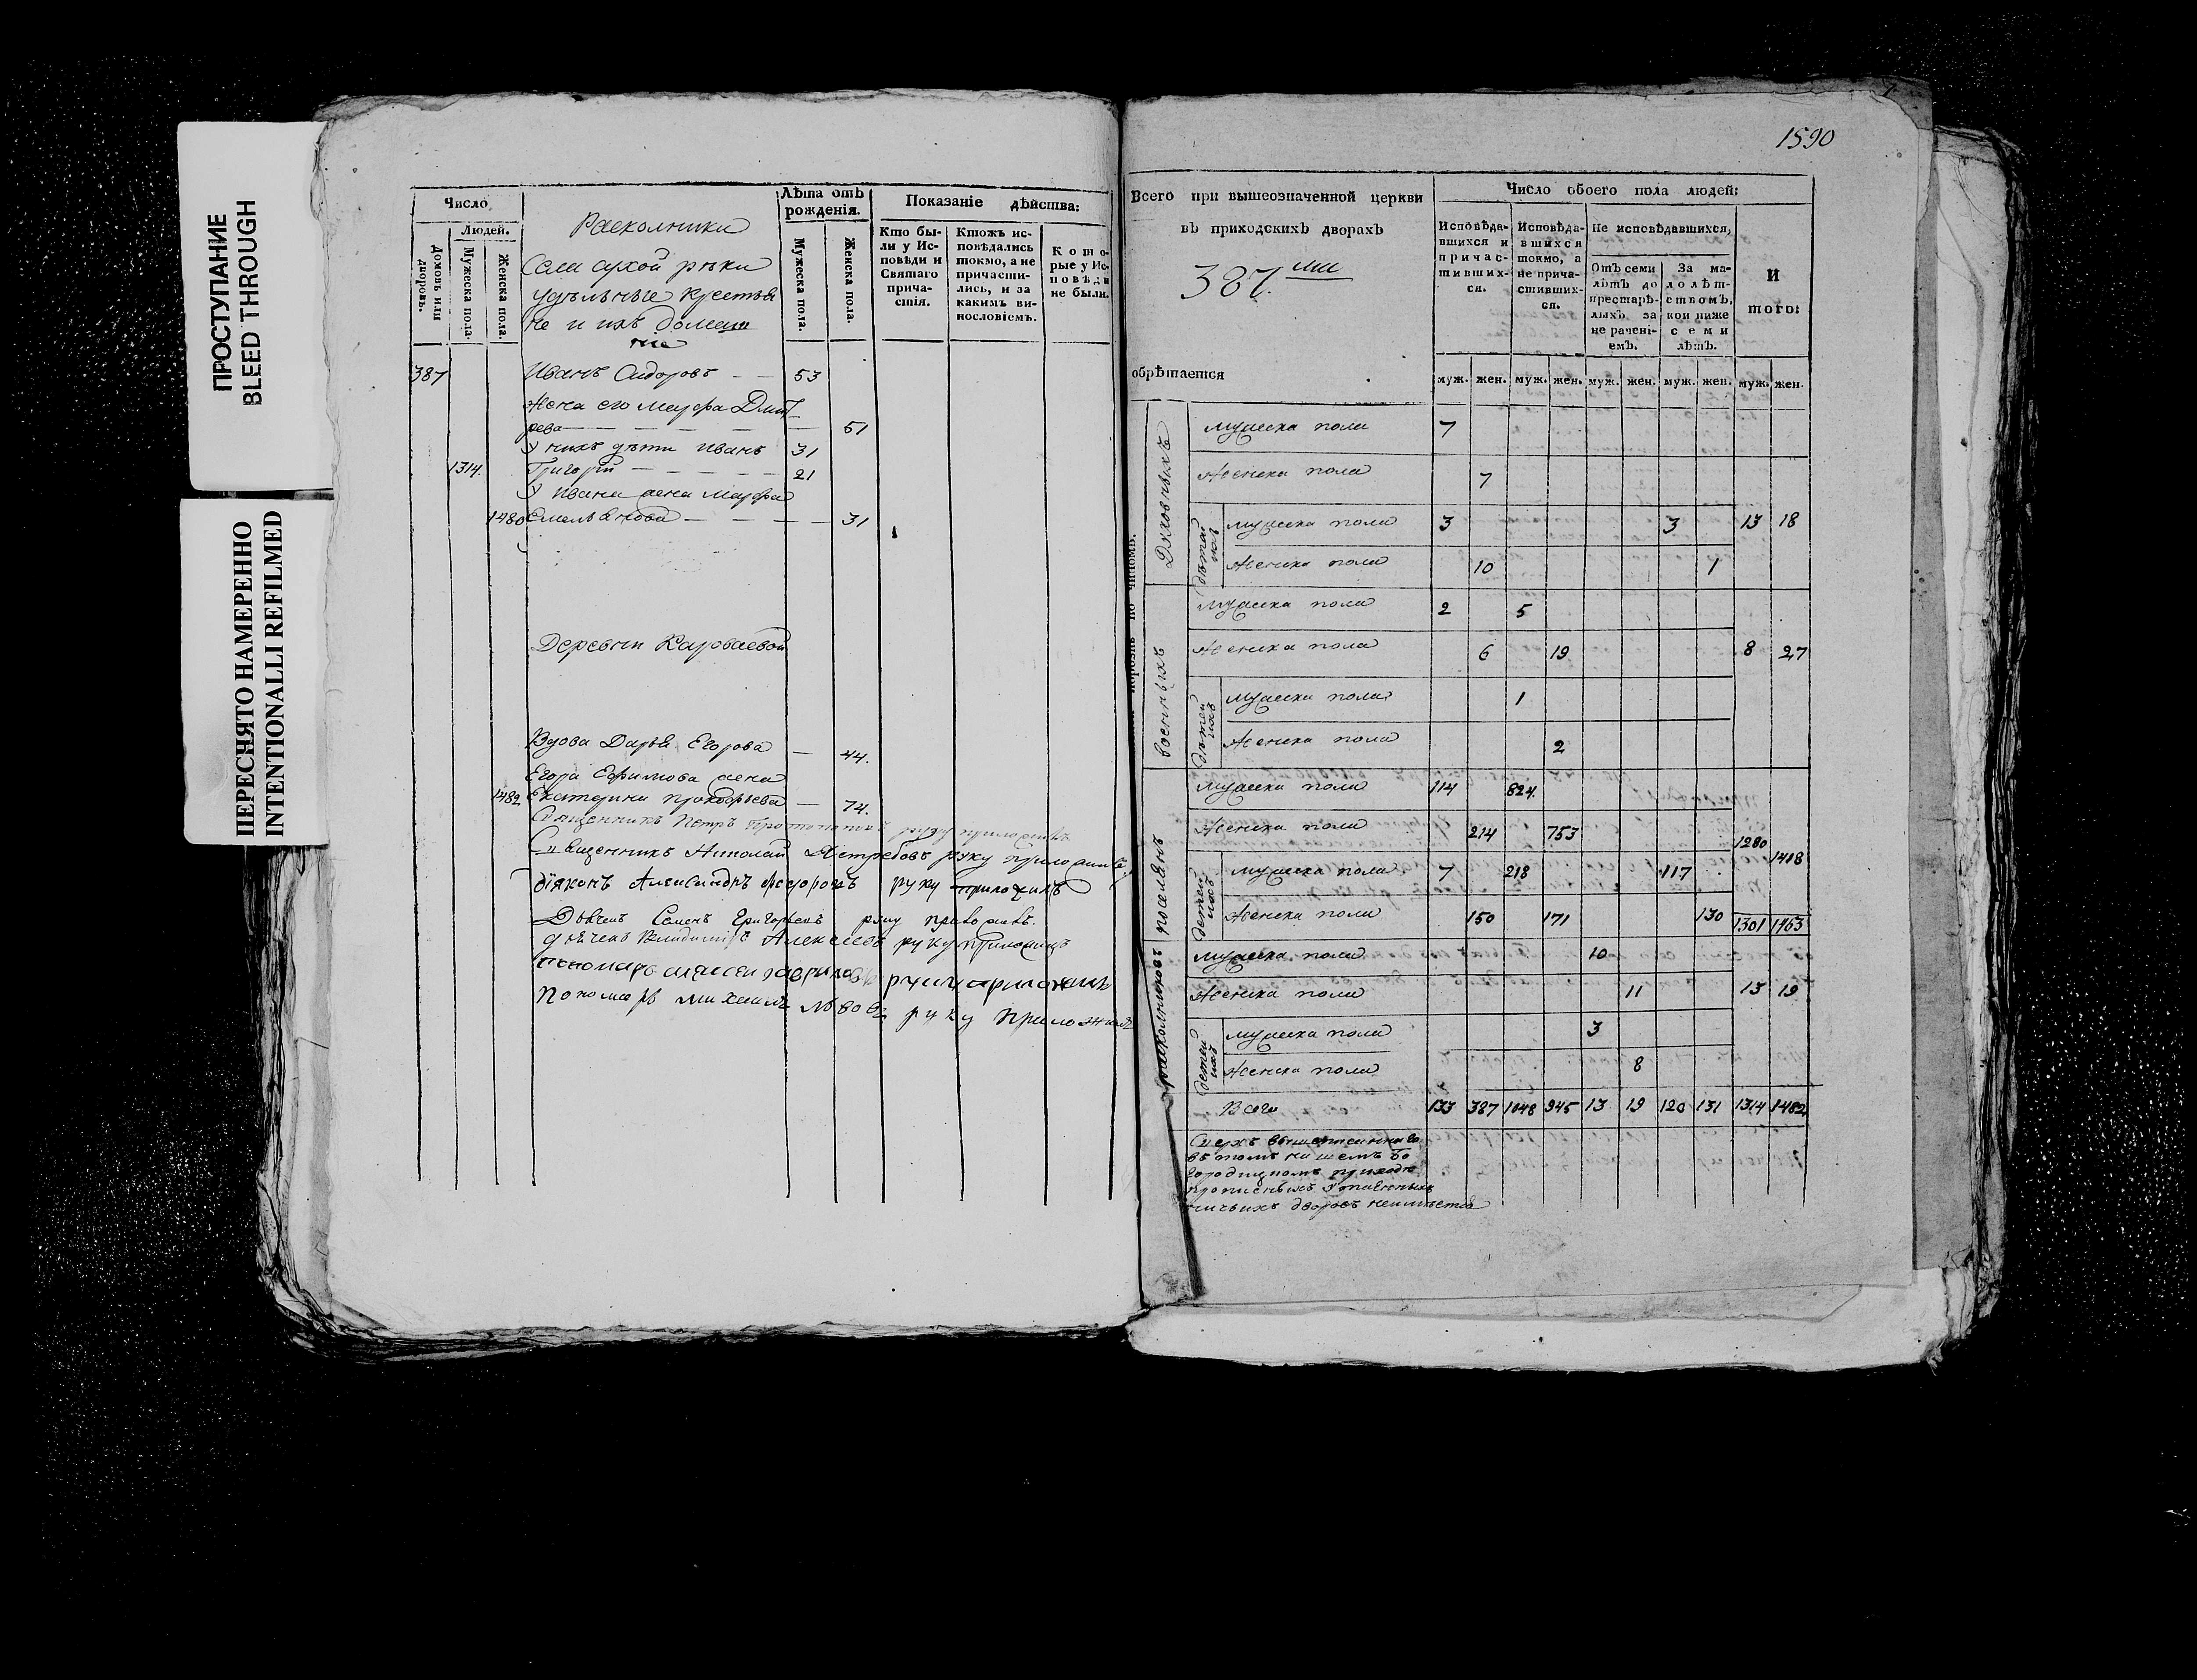 ПРОСТУПАНИЕ
BLEED THROUGH
ПЕРЕСНЯТО НАМЕРЕННО
INTENTIONALLI REFILMED
Число
Людей.
Домовъ или дворовъ.
Мужеска пола.
Женска пола.
Раскольники
Села сухой рѣки
удѣльные крестья
не и ихъ домаш
ніе
Лѣта отъ рожденія.
Мужеска пола.
Женска пола.
Показаніе дѣйства:
Кто бы-
ли у Ис-
повѣди и
Святаго
прича-
стія.
Ктожъ ис-
повѣдались
токмо, а не
причасти-
лись, и за
какимъ ви-
нословіемъ.
Кото-
рые у Ис-
повѣди
не были.
387 Иванъ Сидоровъ 53
Жена его Марфа Дмит
рева 51
У нихъ дѣти Иванъ 31
1314. Григорій 21
У Ивана жена Марфа
1480 Емельянова 31
Деревни Карваевой
Вдова Дарья Егорова 44.
Егора Ефимова жена
1482 Екатерина прокофьева 74.
Священникъ Петръ руку приложилъ
Священникъ Николай Ястребовъ руку приложилъ
діяконъ Александръ Федоровъ руку приложилъ
Дьячекъ Семенъ Григорьевъ руку приложилъ.
дьячекъ Владимиръ Алексеевъ руку приложилъ
пономарь Алексеи Гавриловъ руку приложилъ
Пономарь Михаилъ Львовъ руку приложилъ
1590
Всего при вышеозначенной церкви
въ приходскихъ дворахъ
387.ми
обрѣтается
порознь по чиномъ.
Число обоего пола людей:
Исповѣда-
вшихся и
причас-
тивших-
ся.
Исповѣда-
вшихся
токмо, а
не прича-
стивших-
ся.
Не исповѣдавшихся,
Отъ семи
лѣтъ до
престарѣ-
лыхъ за
не рачені-
емъ.
За ма-
лолѣт-
ствомъ,
кои ниже
семи
лѣтъ.
И
того:
муж. жен. муж. жен. муж. жен. муж. жен. муж. жен.
Духовныхъ
мужеска пола 7
женска пола 7
дѣтей ихъ
мужеска пола 3 3 13 18
женска пола 10 1
военныхъ
мужеска пола 2 5
женска пола 6 19 8 27
дѣтей ихъ
мужеска пола 1
женска пола 2
поселянъ
мужеска пола 114 824.
женска пола 214 753 1280 1418
детей ихъ
мужеска пола 7 218 117
женска пола 150 171 130 1301 1463
раскольниковъ
мужеска пола 10
женска пола 11 13 19
детей ихъ
мужеска пола 3
женска пола 8
Всего 133 387 1048 945 13 19 120 131 1314 1482
Сверхъ вышеписаннаго
въ томъ нашемъ Бо
городицкомъ приходѣ
прописныхъ утаенныхъ
ничьихъ дворовъ неимѣется